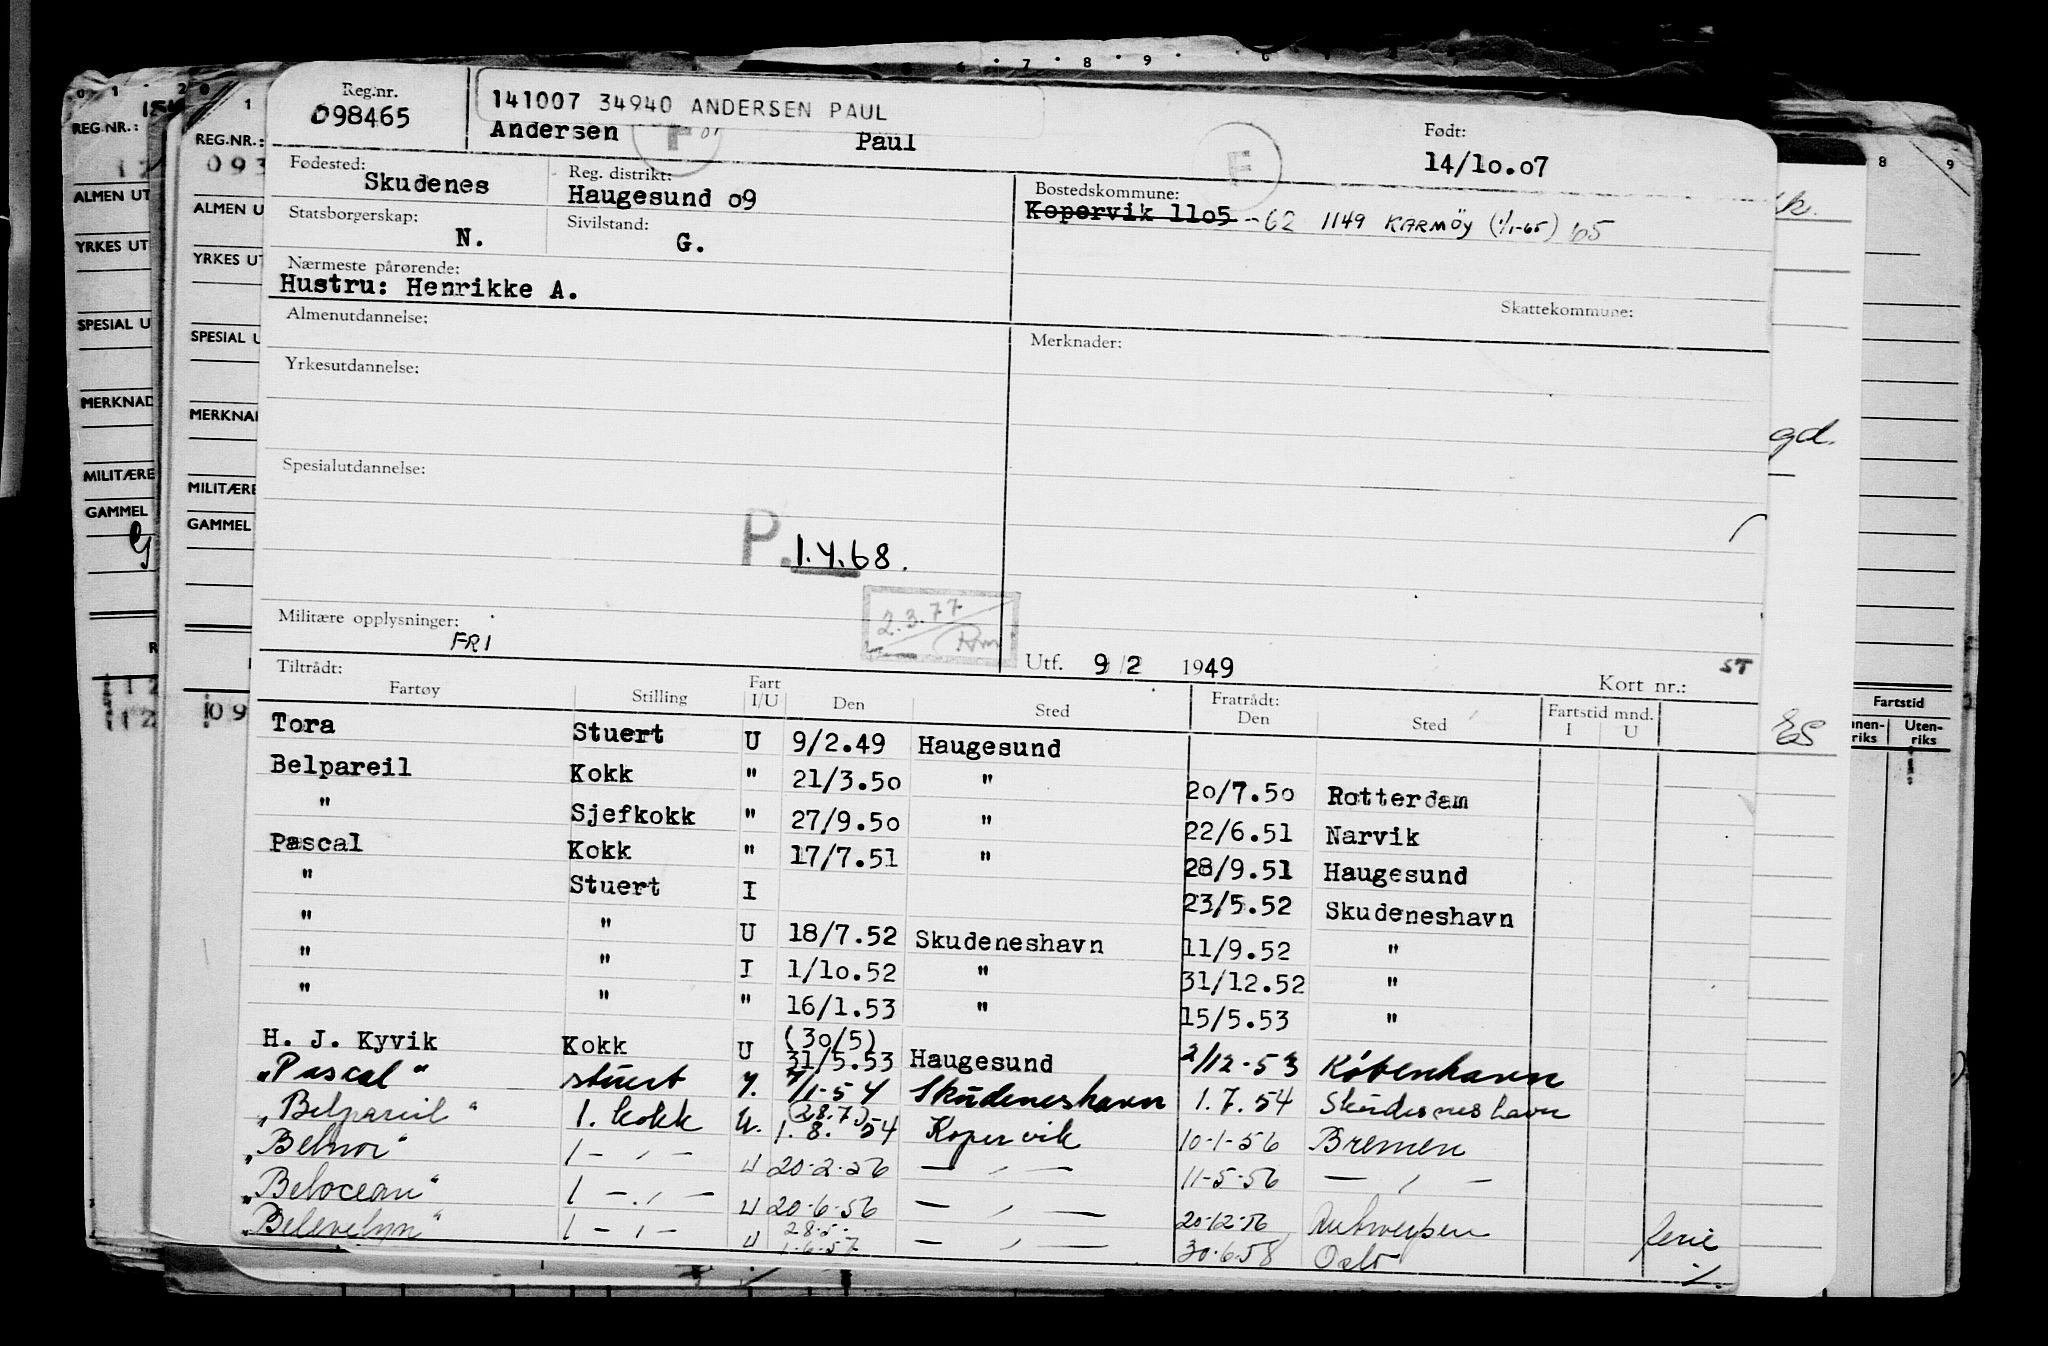 Reg.nr.
098465
141007 34940 ANDERSEN PAUL
Andersen Paul
F
F
Født:
14/10.07
Fødested:
Skudenes
Reg. distrikt:
Haugesund 09
Bostedskommune:
Kopervik 1105 -62 1149 KARMÖY (1/1-65) 65
Statsborgerskap:
N.
Sivilstand:
G.
Nærmeste pårørende:
Hustru: Henrikke A.
Skattekommune:
Almenutdannelse:
Merknader:
Yrkesutdannelse:
Spesialutdannelse:
P. 1.4.68.
Militære opplysninger:
FRI
2.3.77
Utf. 9/2 1949
ST
Kort nr.:
Tiltrådt:
Fartøy Stilling Fart I/U Den Sted Fratrådt: Den Sted Fartstid mnd. I U
Tora Stuert U 9/2.49 Haugesund
Belpareil Kokk " 21/3.50 " 20/7.50 Rotterdam
" Sjefkokk " 27/9.50 " 22/6.51 Narvik
Pascal Kokk " 17/7.51 " 28/9.51 Haugesund
" Stuert I 23/5.52 Skudeneshavn
" " U 18/7.52 Skudeneshavn 11/9.52 "
" " I 1/10.52 " 31/12.52 "
" " " 16/1.53 " 15/5.53 "
H. J. Kyvik Kokk U (30/5) 31/5.53 Haugesund 2/12-53 København
"Pascal" stuert 7/1-54 Skudeneshavn 1.7.54 Skudesneshavn
"Belpareil" 1. kokk U. (28.7) 1.8.54 Kopervik 10-1-56 Bremen
"Belnor" 1 - " - U 20-2-56 - " - 11-5-56 - " -
"Belocean" 1 - " - U 20-6-56 - " - 20-12-56 Antwerpen ferie
"Belevelyn" 1 - " - U 28.5- 1-6-57 - " - 30-6-58 Oslo
REG.NR.:
ALMEN UT
YRKES UT
SPESIAL U
MERKNAD
MILITÆRE
GAMMEL
REG.NR.:
093
ALMEN U
YRKES UT
SPESIAL U
MERKNA
MILITÆRE
GAMMEL
09
gd.
Fartstid
Uten-
riks